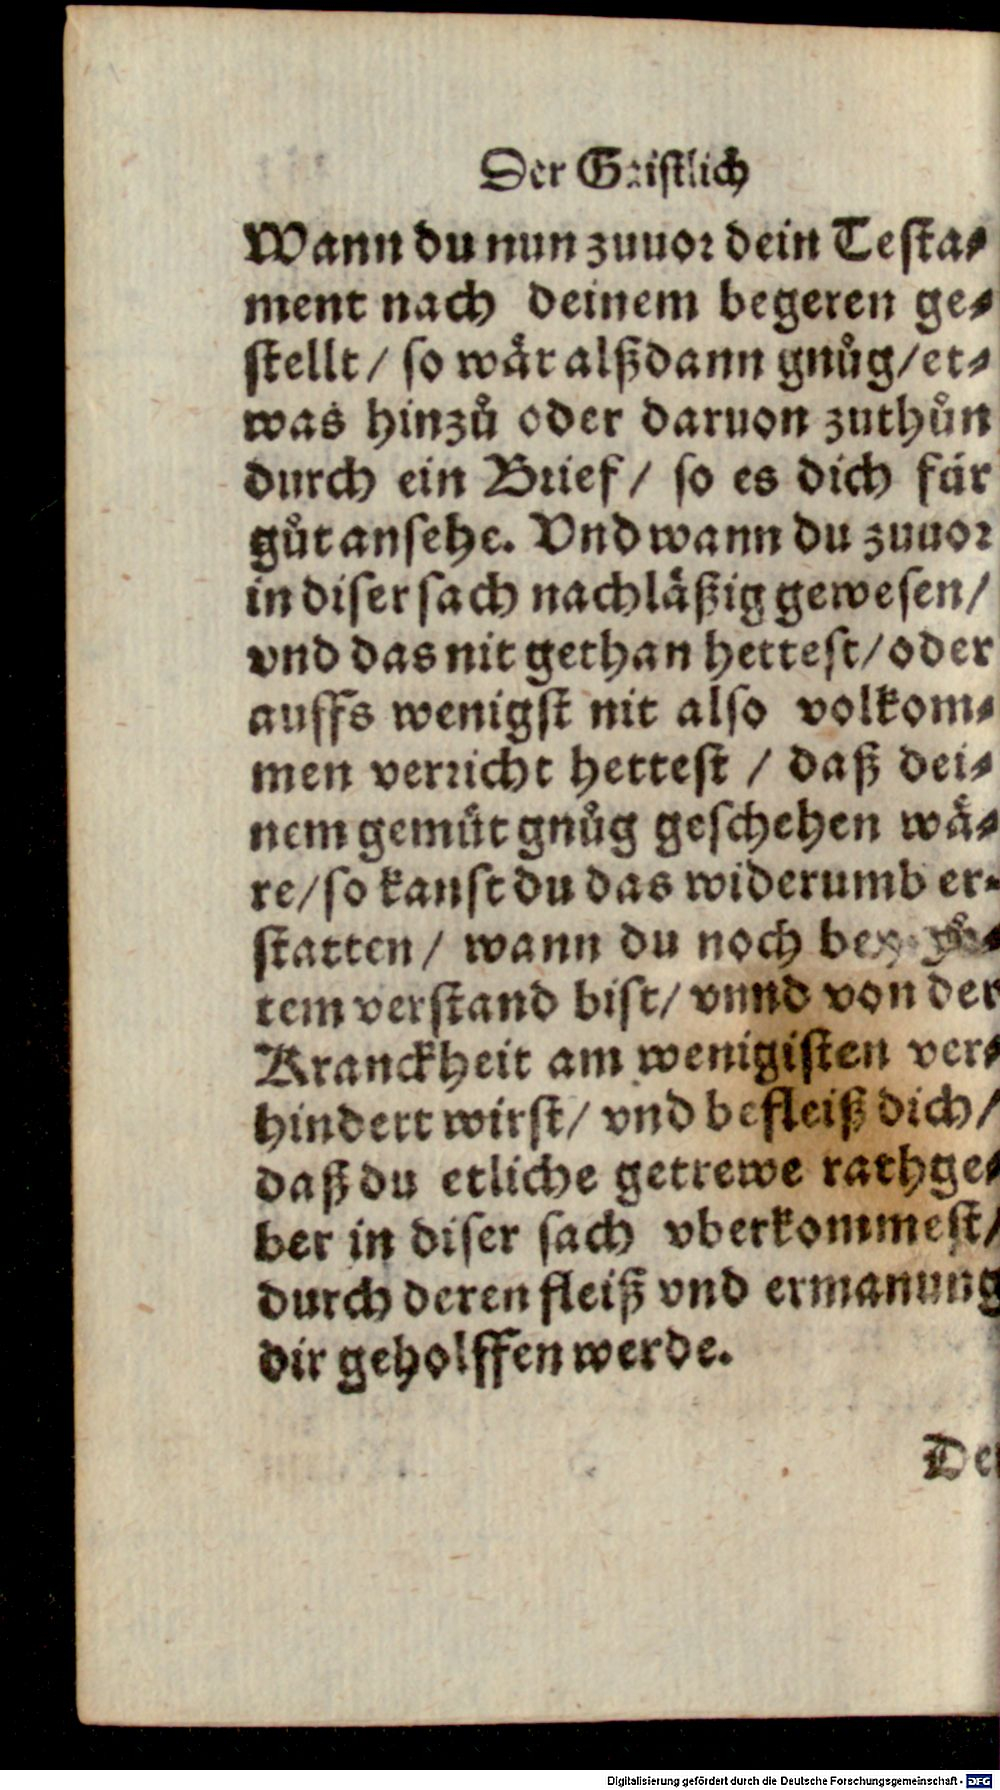 Der Geistlich
Wann du nun zuuor dein Testa-
ment nach deinem begeren ge-
stellt / so wår alßdann gnůg / et-
was hinzů oder daruon zuthůn
durch ein Brief / so es dich fůr
gůt ansehe. Vnd wann du zuuor
in diser sach nachlåßig gewesen /
vnd das nit gethan hettest / oder
auffs wenigst nit also volkom-
men verricht hettest / daß dei-
nem gemůt gnůg geschehen wå-
re / so kanst du das widerumb er-
statten / wann du noch bey gů-
tem verstand bist / vnnd von der
Kranckheit am wenigisten ver-
hindert wirst / vnd befleiß dich /
daß du etliche getrewe rathge-
ber in diser sach vberkommest /
durch deren fleiß vnd ermanung
dir geholffen werde.
Digitalisierung gefördert durch die Deutsche Forschungsgemeinschaft - DFG